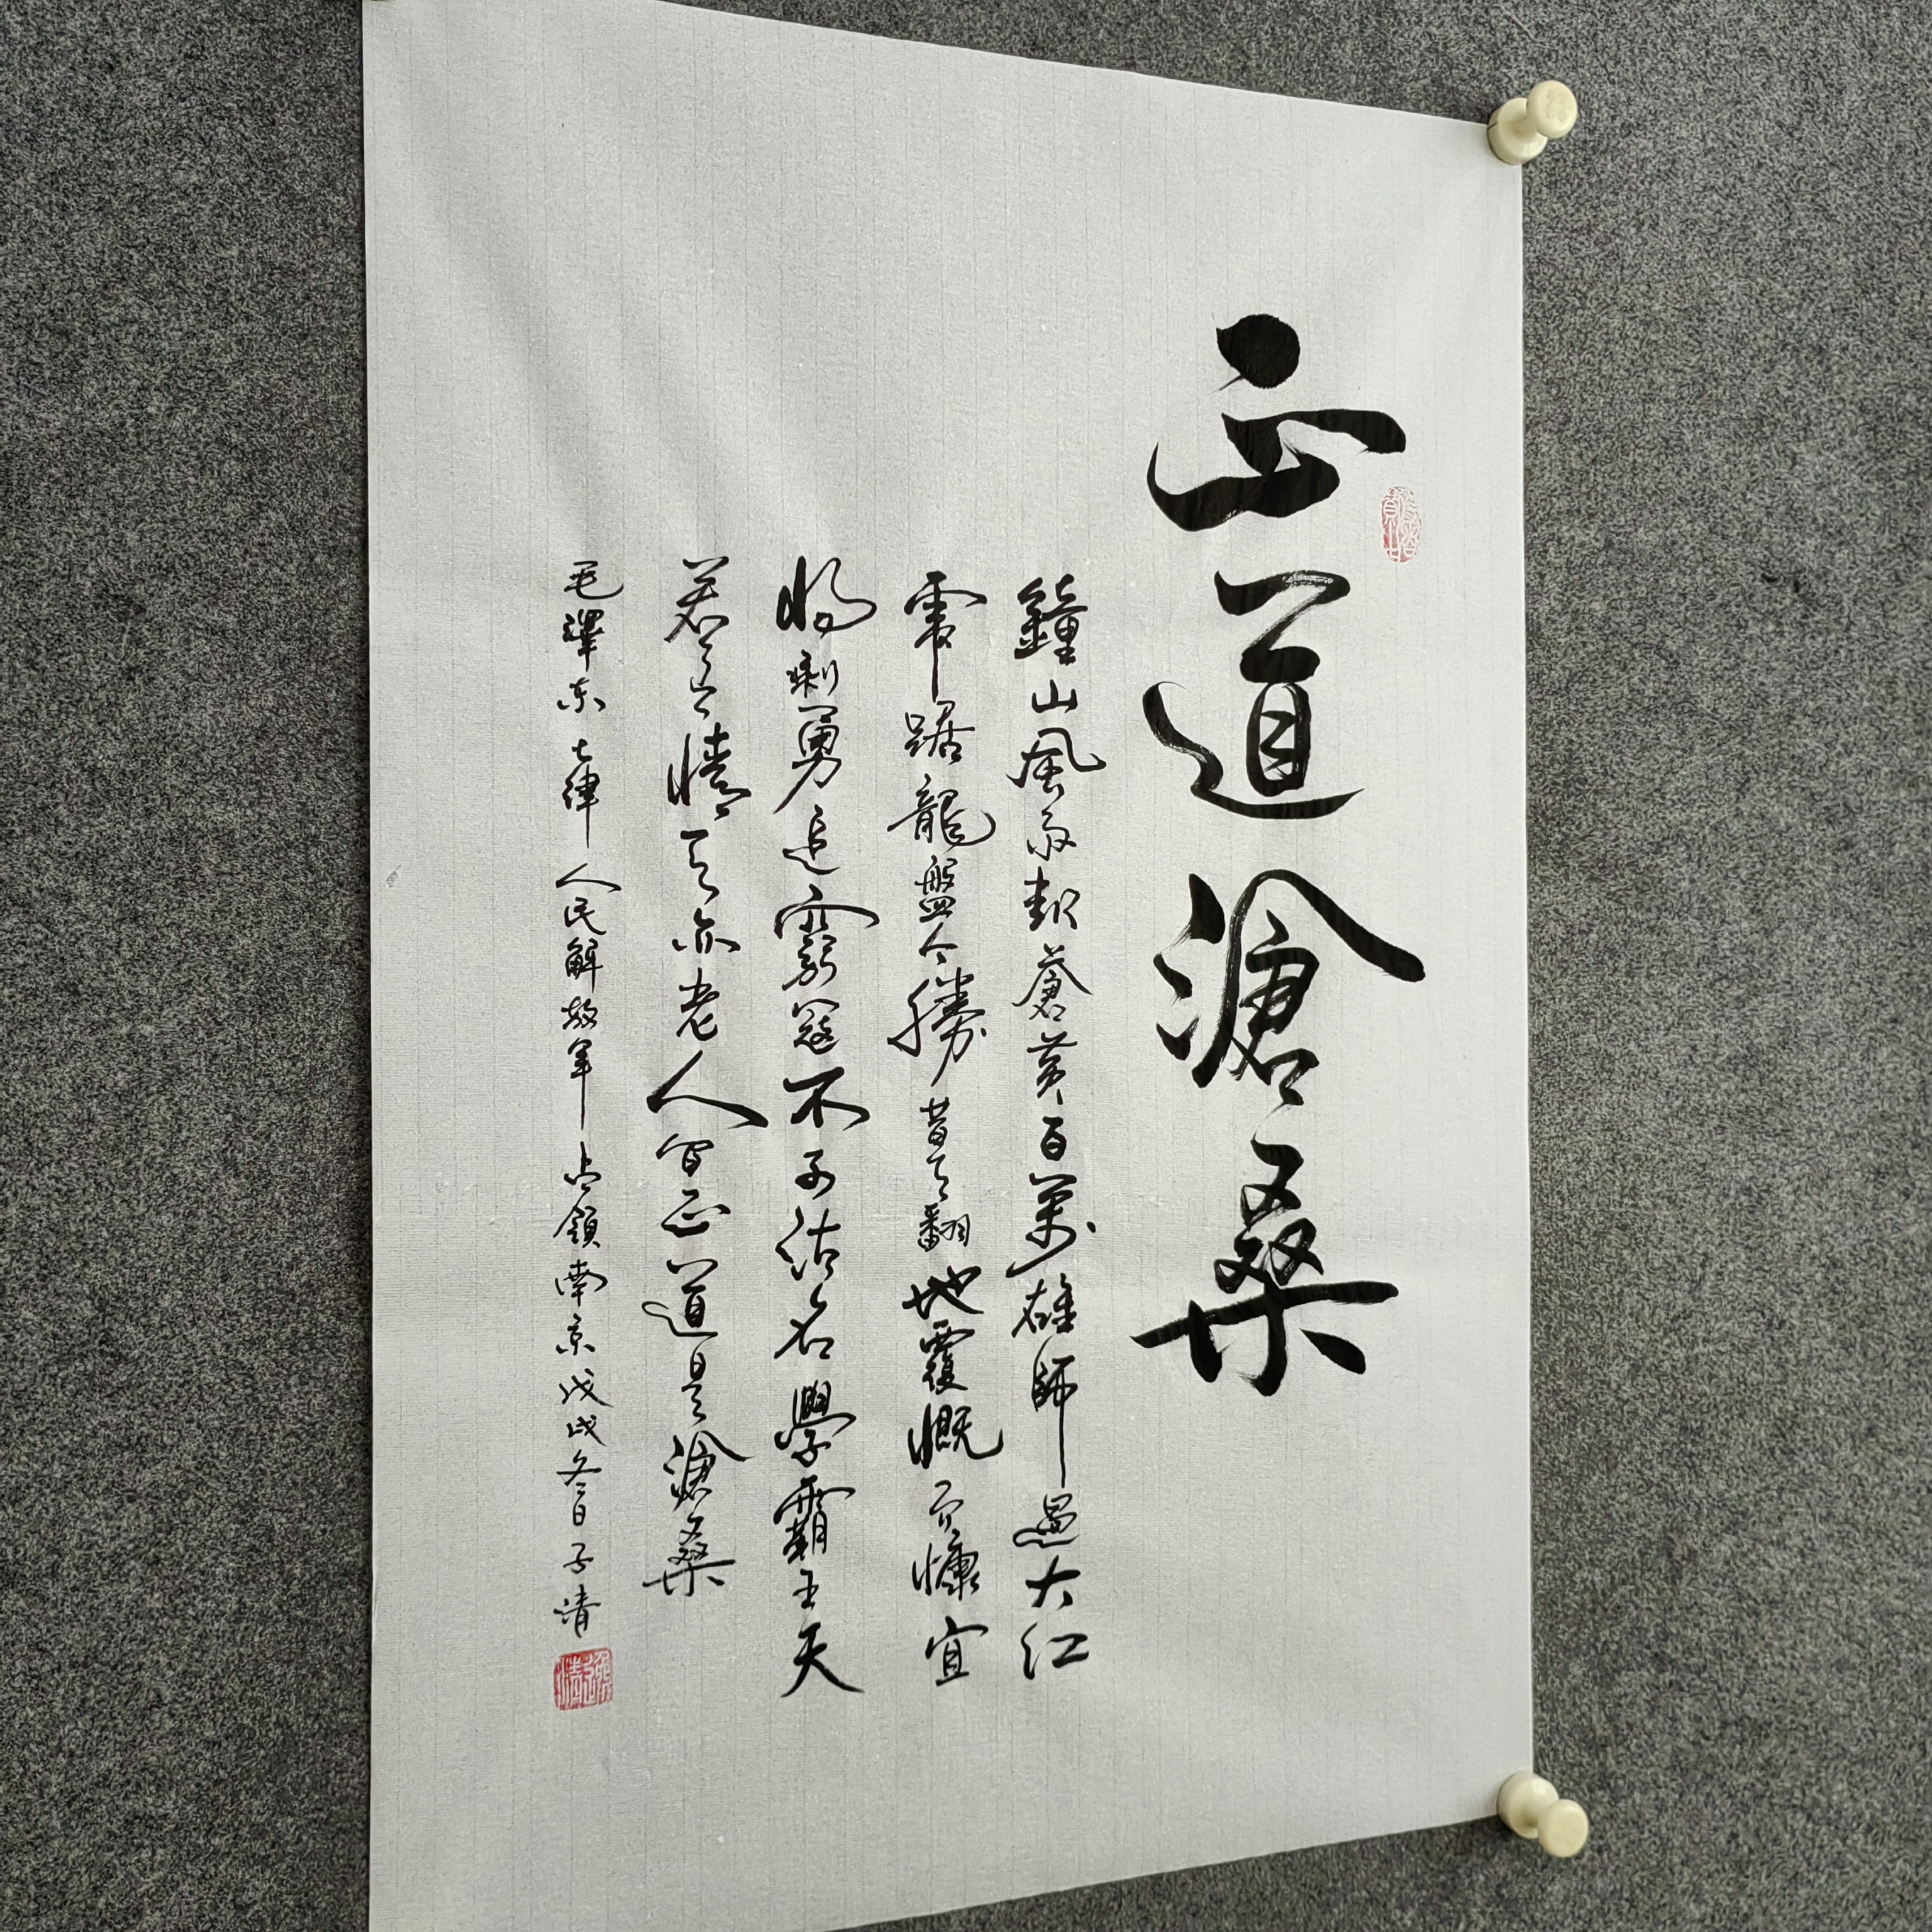 正道滄桑
鐘山風雨起蒼黃百萬雄師過大江
虎踞龍盤今勝昔天翻地覆慨而慷宜
將剩勇追窮寇不可沽名學霸王天
若有情天亦老人間正道是滄桑
毛澤东七律人民解放軍占領南京戊戌冬日子清